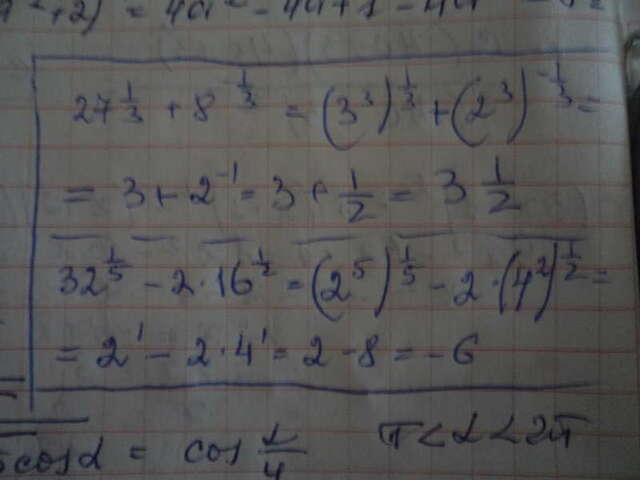 +2) = 4a² - 4a+1 - 4a
27^{1/3} + 8^{-1/3} = (3³)^{1/3} + (2³)^{-1/3} =
= 3 + 2^{-1} = 3 + 1/2 = 3 1/2
32^{1/5} - 2·16^{1/2} = (2⁵)^{1/5} - 2·(4²)^{1/2} =
= 2¹ - 2·4¹ = 2 - 8 = -6
cos α = cos α/4 π < α < 2π